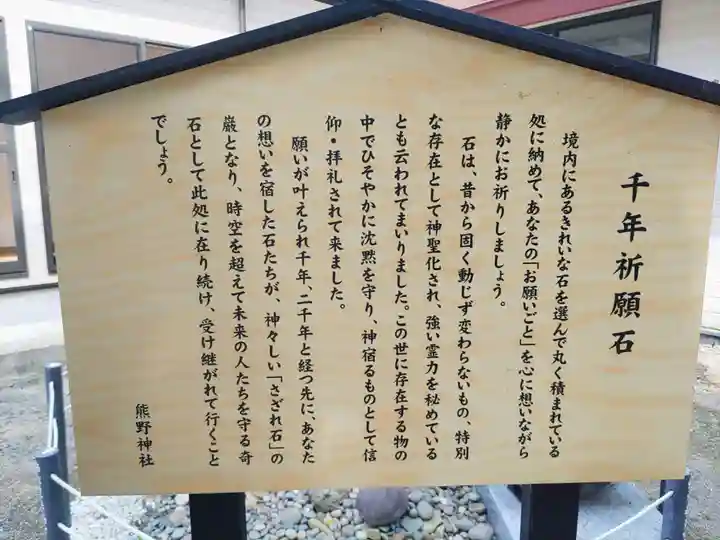 千年祈願石
境内にあるきれいな石を選んで丸く積まれている
処に納めて、あなたの「お願いごと」を心に想いながら
静かにお祈りしましょう。
石は、昔から固く動じず変わらないもの、特別
な存在として神聖化され、強い霊力を秘めている
とも云われてまいりました。この世に存在する物の
中でひそやかに沈黙を守り、神宿るものとして信
仰・拝礼されて来ました。
願いが叶えられ千年、二千年と経つ先に、あなた
の想いを宿した石たちが、神々しい「さざれ石」の
巌となり、時空を超えて未来の人たちを守る奇
石として此処に在り続け、受け継がれて行くこと
でしょう。
熊野神社